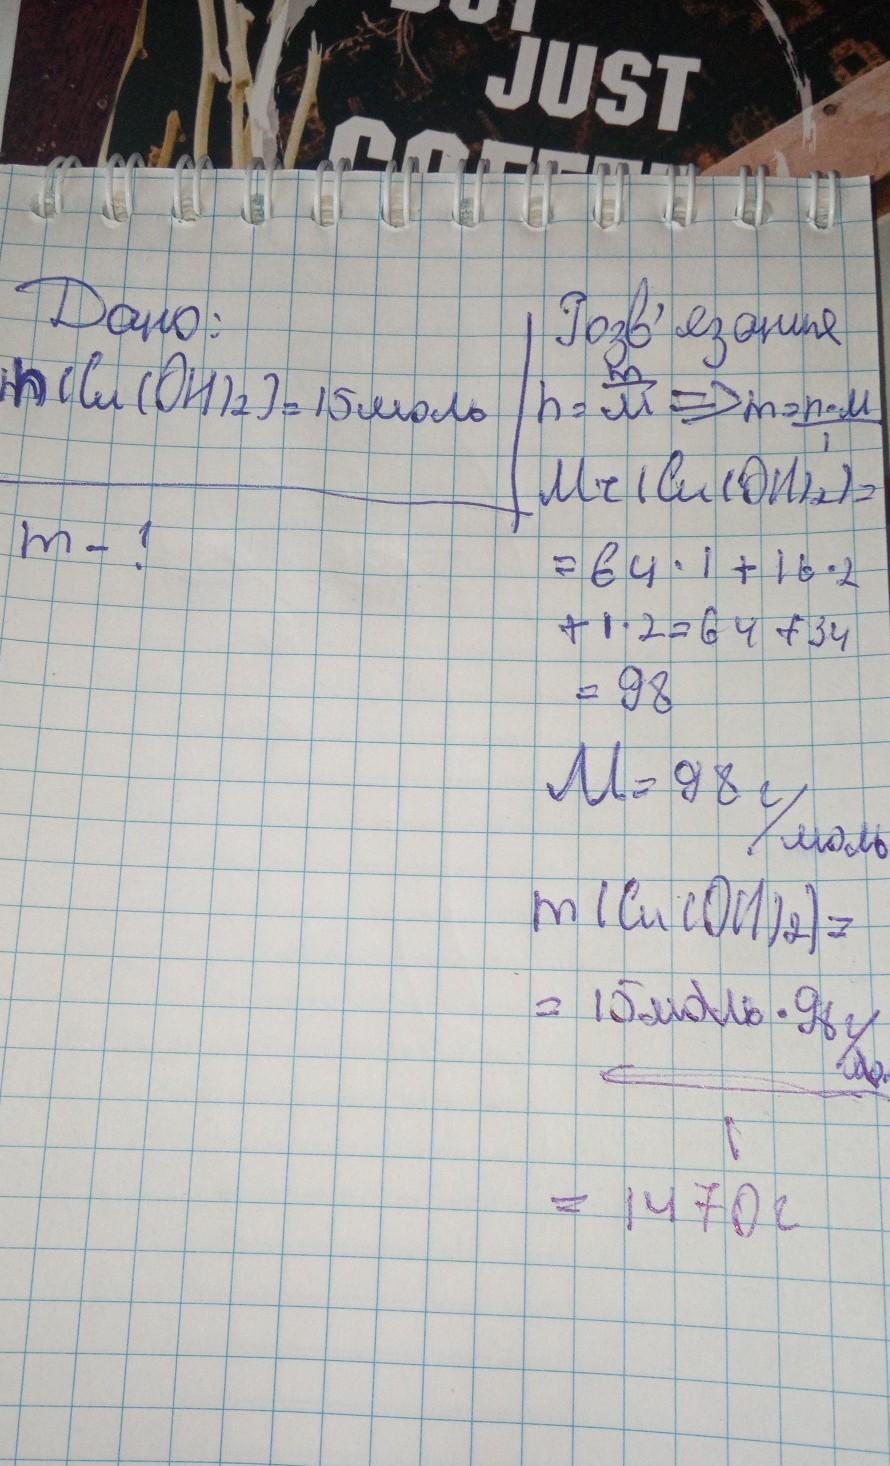 JUST
Дано:
n(Cu(OH)2)=15моль
m - ?
Розв'язання
n = m/M => m = n·M/1
Mr(Cu(OH)2)=
=64·1+16·2
+1·2=64+34
=98
M=98 г/моль
m(Cu(OH)2)=
= 15моль·98г/мо.
1
= 1470г